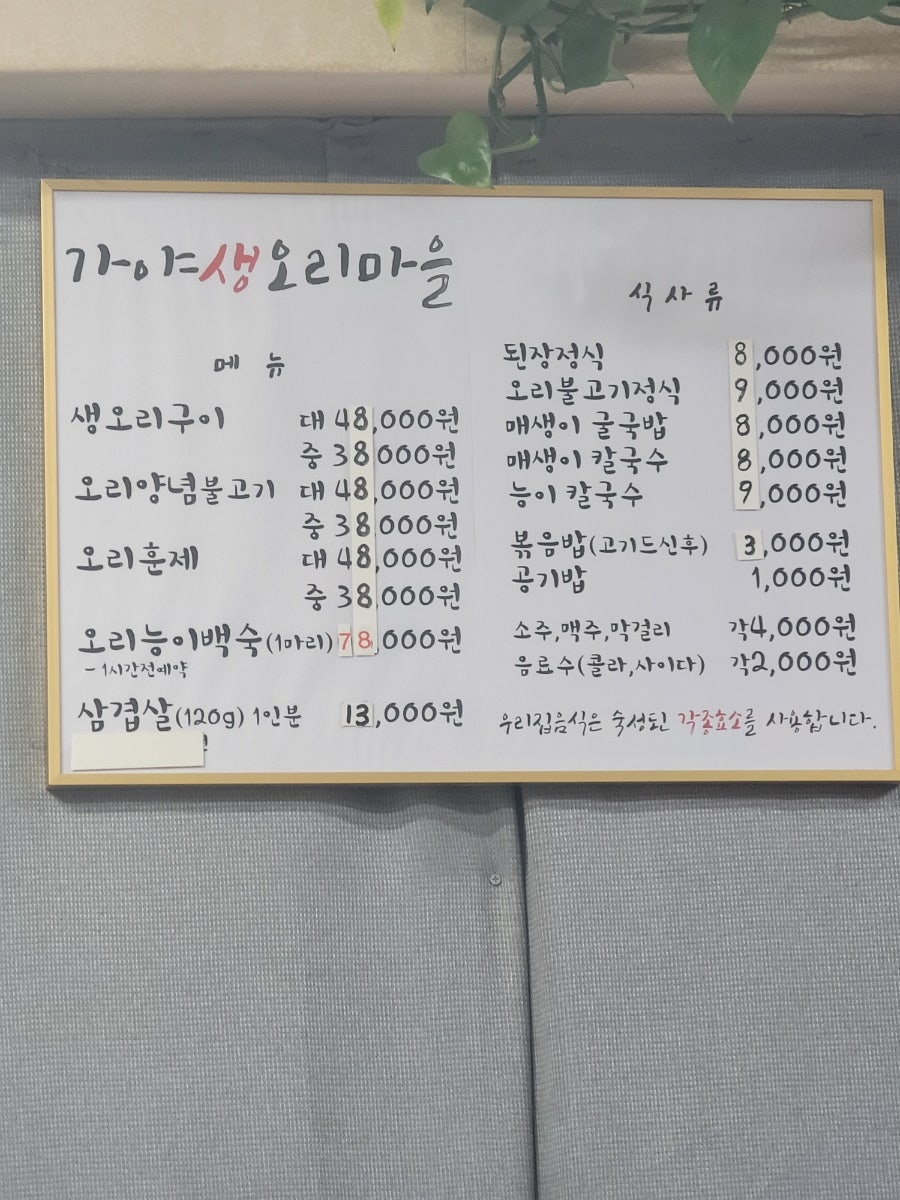 가야생오리마을
메 뉴
생오리구이 대 48,000원
중 38,000원
오리양념불고기 대 48,000원
중 38,000원
오리훈제 대 48,000원
중 38,000원
오리능이백숙(1마리) 78,000원
- 1시간전예약
삼겹살(120g) 1인분 13,000원
식 사 류
된장정식 8,000원
오리불고기정식 9,000원
매생이 굴국밥 8,000원
매생이 칼국수 8,000원
능이 칼국수 9,000원
볶음밥(고기드신후) 3,000원
공기밥 1,000원
소주,맥주,막걸리 각4,000원
음료수(콜라,사이다) 각2,000원
우리집음식은 숙성된 각종효소를 사용합니다.